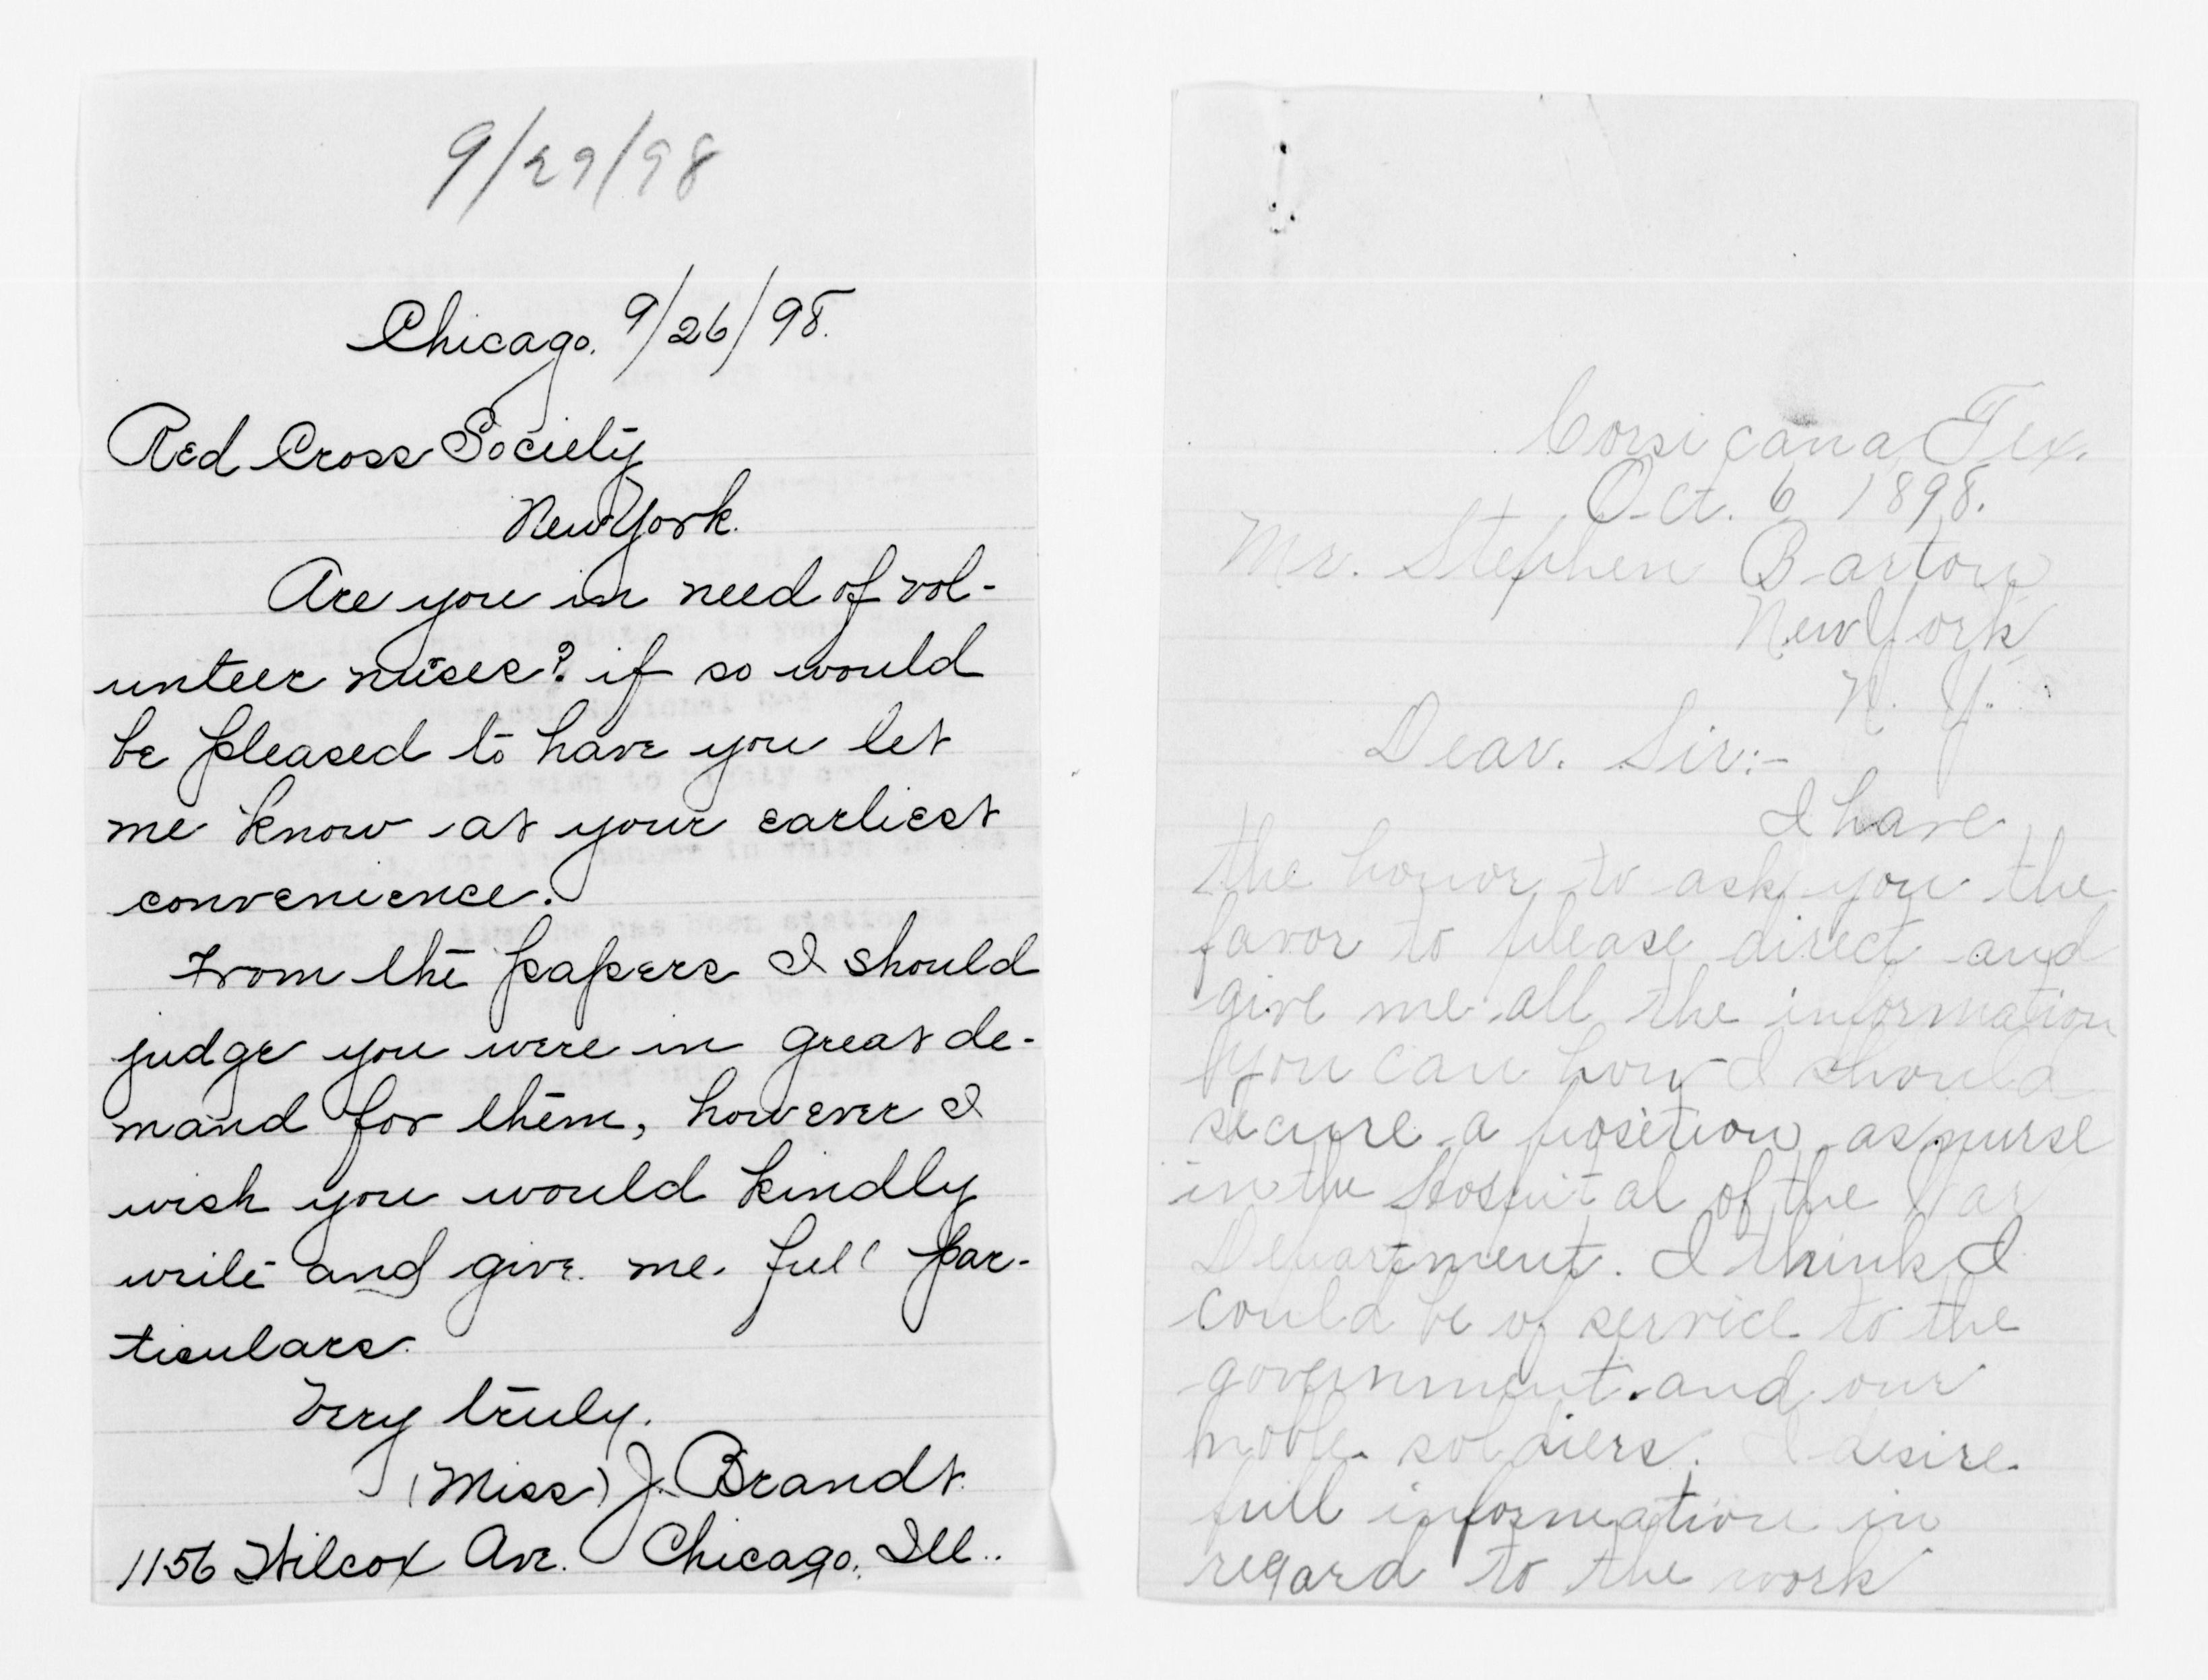 9/29/98
Chicago. 9/26/98.
Red Cross Society
New York.
Are you in need of vol-
unteer nurses? if so would
be pleased to have you let
me know at your earliest
convenience.
From the papers I should
judge you were in great de-
mand for them, however I
wish you would kindly
write and give me full par-
ticulars.
Very truly.
(Miss) J. Brandt.
1156 Wilcox Ave. Chicago. Ill..
Corsicana, Tex.
Oct. 6 1898.
Mr. Stephen Barton
New York
N. Y.
Dear. Sir:-
I have
the honor to ask you the
favor to please direct and
give me all the information
you can how I should
secure a position as nurse
in the Hospital of the War
Department. I think I
could be of service to the
government and our
noble soldiers. I desire
full information in
regard to the work